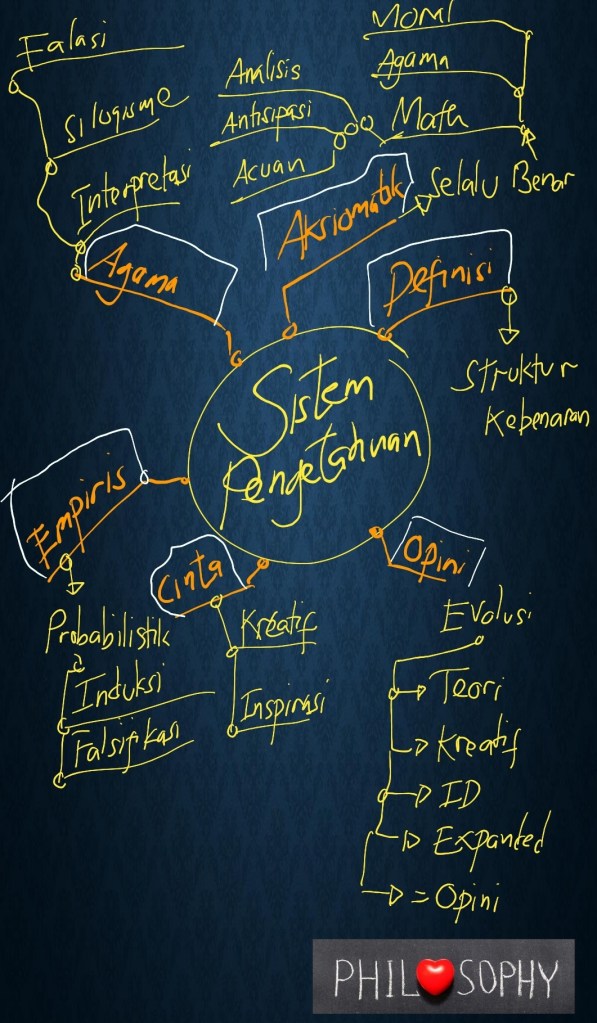 Falasi
Silogisme
Interpretasi
Agama
Analisis
Antisipasi
Acuan
Moral
Agama
Math
Selalu Benar
Aksiomatik
Definisi
Struktur
Kebenaran
Sistem
Pengetahuan
Empiris
Probabilistik
Induksi
Falsifikasi
Cinta
Kreatif
Inspirasi
Opini
Evolusi
Teori
Kreatif
ID
Expanted
= Opini
PHIL❤SOPHY